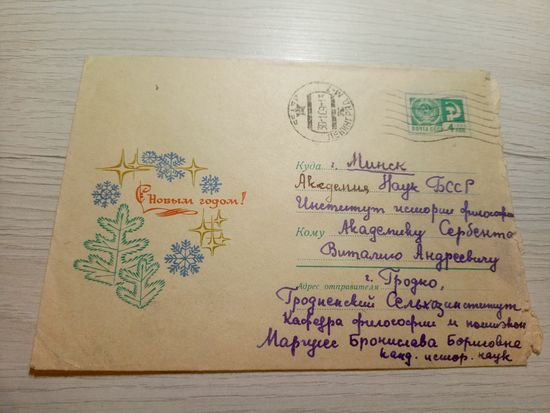 ПОЧТА СССР 4 КОП
С Новым годом!
Куда г. Минск
Академия Наук БССР
Институт истории философии
Кому Академику Сербента
Виталию Андреевичу
г. Гродно,
Адрес отправителя
Гродненский Сельхозинститут
Кафедра философии и
Бронислава Борисовна
канд. истор. наук